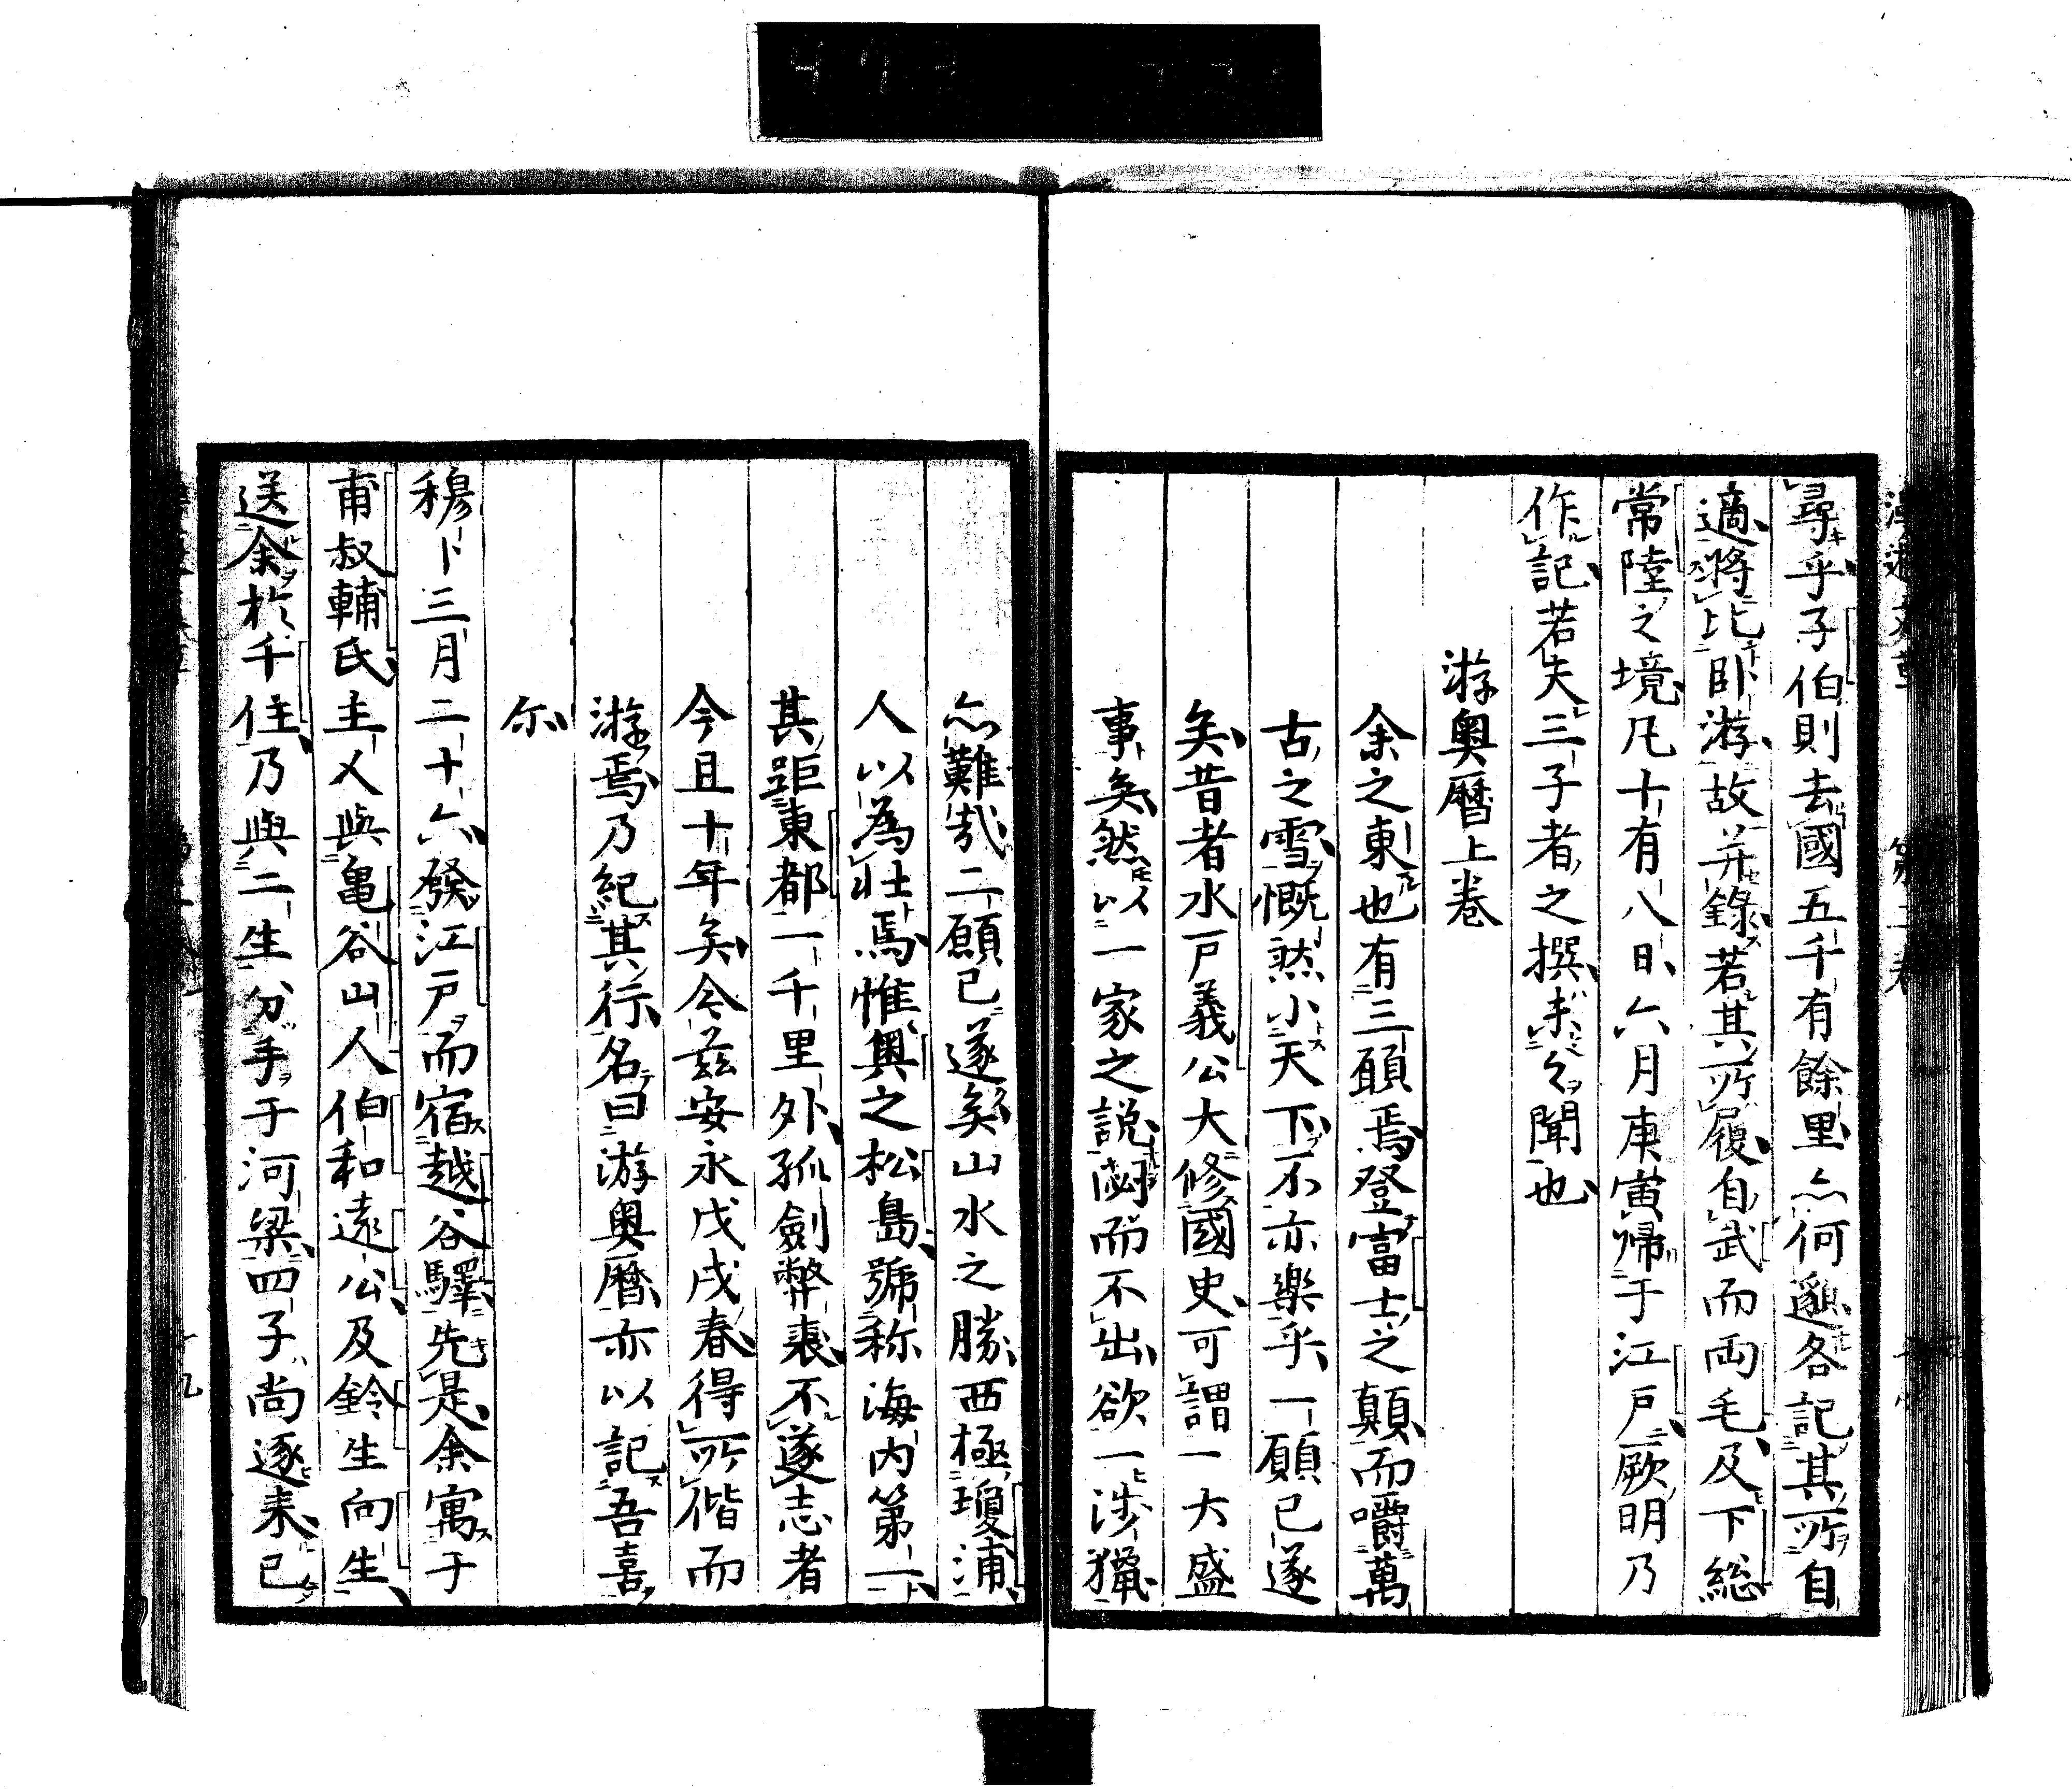 尋乎子伯則去國五千有餘里亦何邈各記其所自
適將比卧游故并錄若其所履自武而両毛及下総
常陸之境凡十有八日六月庚寅帰于江戸厥明乃
作記若夫三子者之撰未之聞也
游奥暦上卷
余之東也有三願焉登富士之顛而嚼萬
古之雪慨然小天下不亦楽乎一願已遂
矣昔者水戸義公大修國史可謂一大盛
事矣然以一家之説而不出欲一渉獵
亦難哉二願已遂矣山水之勝西極瓊浦
人以為壮焉惟奥之松島號称海内第一
其距東都一千里外孤劍弊裘不遂志者
今且十年矣今茲安永戊戌春得所偕而
游焉乃紀其行名曰游奥暦亦以記吾喜
尓
穆卜三月二十六發江戸而宿越谷驛先是余寓于
甫叔輔氏主乂與亀谷山人伯和遠公及鈴生向生
送余於千住乃與二生分手于河梁四子尚逐来已